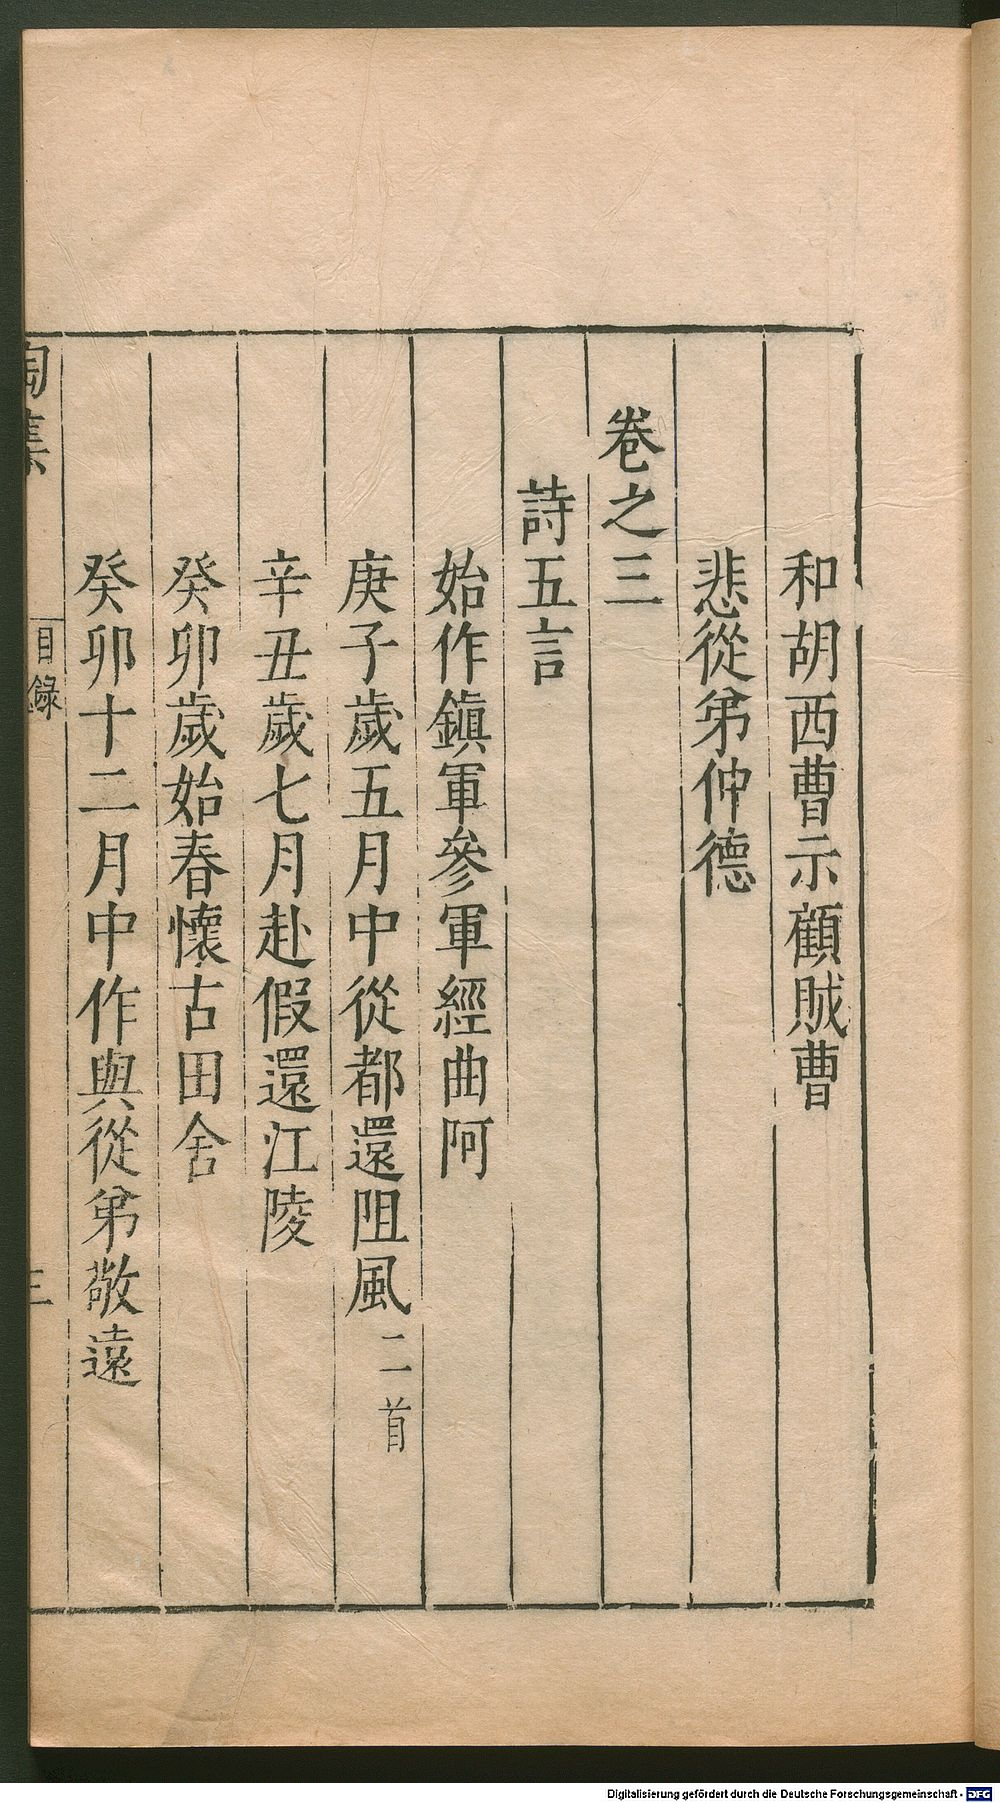 和胡西曹示顧賊曹
悲從弟仲德
卷之三
詩五言
始作鎮軍參軍經曲阿
庚子歲五月中從都還阻風二首
辛丑歲七月赴假還江陵
癸卯歲始春懷古田舍
癸卯十二月中作與從弟敬遠
陶集
目録
三
Digitalisierung gefördert durch die Deutsche Forschungsgemeinschaft - DFG